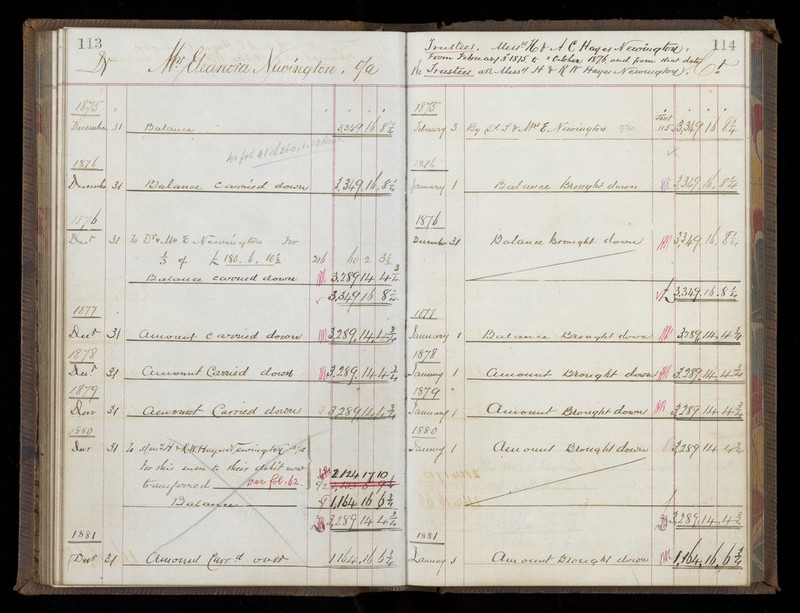 113
Dr Mrs Eleanora Newington, c/a
1875
December 31 Balance 3,349 16 8¼
1876
December 31 Balance Carried down 3,349 16 8¼
1876
Decr 31 To Dr & Mrs E Newington for
⅓ of £180. 6. 10½ 216 60 2 3½
Balance carried down 3,289 14 4¾
3,349 16 8¼
1877
Decr 31 Amount Carried down 3,289 14 4¾
1878
Decr 31 Amount Carried down 3,289 14 4¾
1879
Decr 31 Amount Carried down 3289 14 4¾
1880
Decr 31 To Messrs H & R W Hayes Newington
for this sum to their debit now
transferred per fol. 62. 2124 17 10
Balance 1,164 16 6¾
3,289 14 4¾
1881
Decr 31 Amount Carrd over 1164 16 6¾
114
Trustees. Messrs H & A C Hayes Newington.
From February 3d 1875 to October 1876, and from that date
the Trustees are Messrs H & R W Hayes Newington. Cr.
1875
February 3 By Mrs E Newington 115 3,349 16 8¼
1876
January 1 Balance Brought down 3,349 16 8¼
1876
December 31 Balance brought down 3349 16 8¼
3,349 16 8¼
1877
January 1 Balance Brought down 3289 14 4¾
1878
January 1 Amount Brought down 3,289 14 4¾
1879
January 1 Amount Brought down 3,289 14 4¾
1880
January 1 Amount Brought down 3,289 14 4¾
3,289 14 4¾
1881
January 1 Amount Brought down 1,164 16 6¾